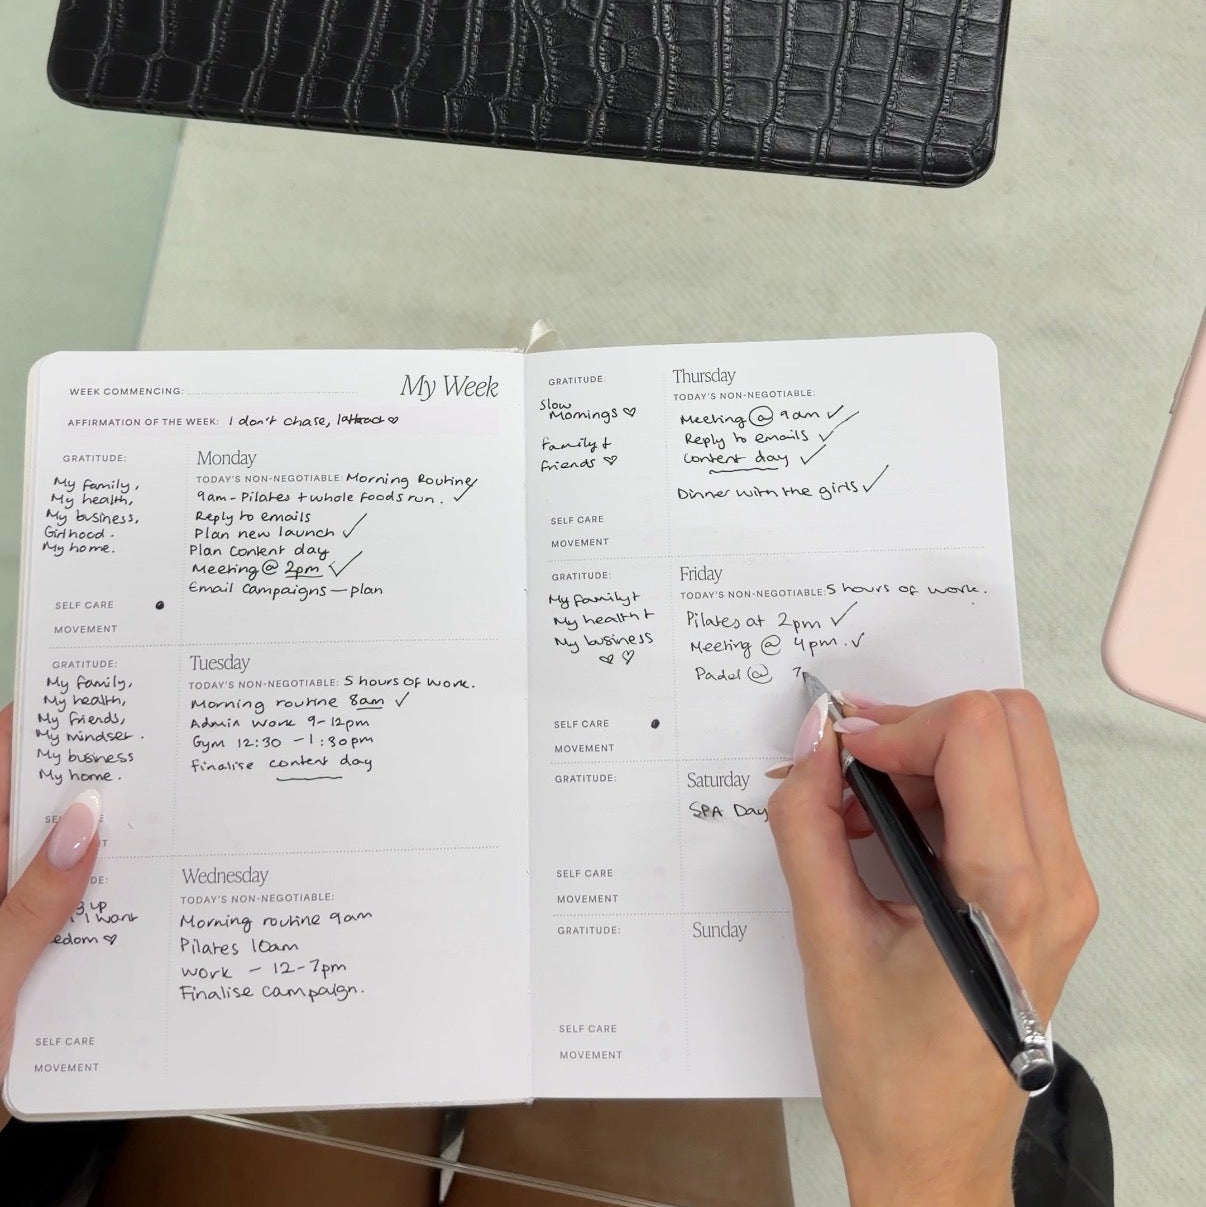 WEEK COMMENCING:
My Week
AFFIRMATION OF THE WEEK: I don't chase, I attract ♡
GRATITUDE:
My family,
My health,
My business,
Girlhood.
My home.
SELF CARE
MOVEMENT
Monday
TODAY'S NON-NEGOTIABLE: Morning Routine
9am - Pilates + whole foods run. ✓
Reply to emails
Plan new launch ✓
Plan content day
Meeting @ 2pm ✓
Email campaigns — plan
GRATITUDE:
My family,
My health,
My friends,
My mindset.
My business
My home.
Tuesday
TODAY'S NON-NEGOTIABLE: 5 hours of work.
Morning routine 8am ✓
Admin work 9-12pm
Gym 12:30 - 1:30pm
Finalise content day
up
I want
Wednesday
TODAY'S NON-NEGOTIABLE:
Morning routine 9am
Pilates 10am
Work - 12-7pm
Finalise campaign.
SELF CARE
MOVEMENT
GRATITUDE:
Slow
Mornings ♡
Family +
friends ♡
SELF CARE
MOVEMENT
Thursday
TODAY'S NON-NEGOTIABLE:
Meeting @ 9am ✓
Reply to emails ✓
Content day ✓
Dinner with the girls ✓
GRATITUDE:
My family +
My health +
My business
♡ ♡
SELF CARE
MOVEMENT
Friday
TODAY'S NON-NEGOTIABLE: 5 hours of work.
Pilates at 2pm ✓
Meeting @ 4pm. ✓
Padel @ 7p
GRATITUDE:
SELF CARE
MOVEMENT
Saturday
SPA Day
GRATITUDE:
SELF CARE
MOVEMENT
Sunday